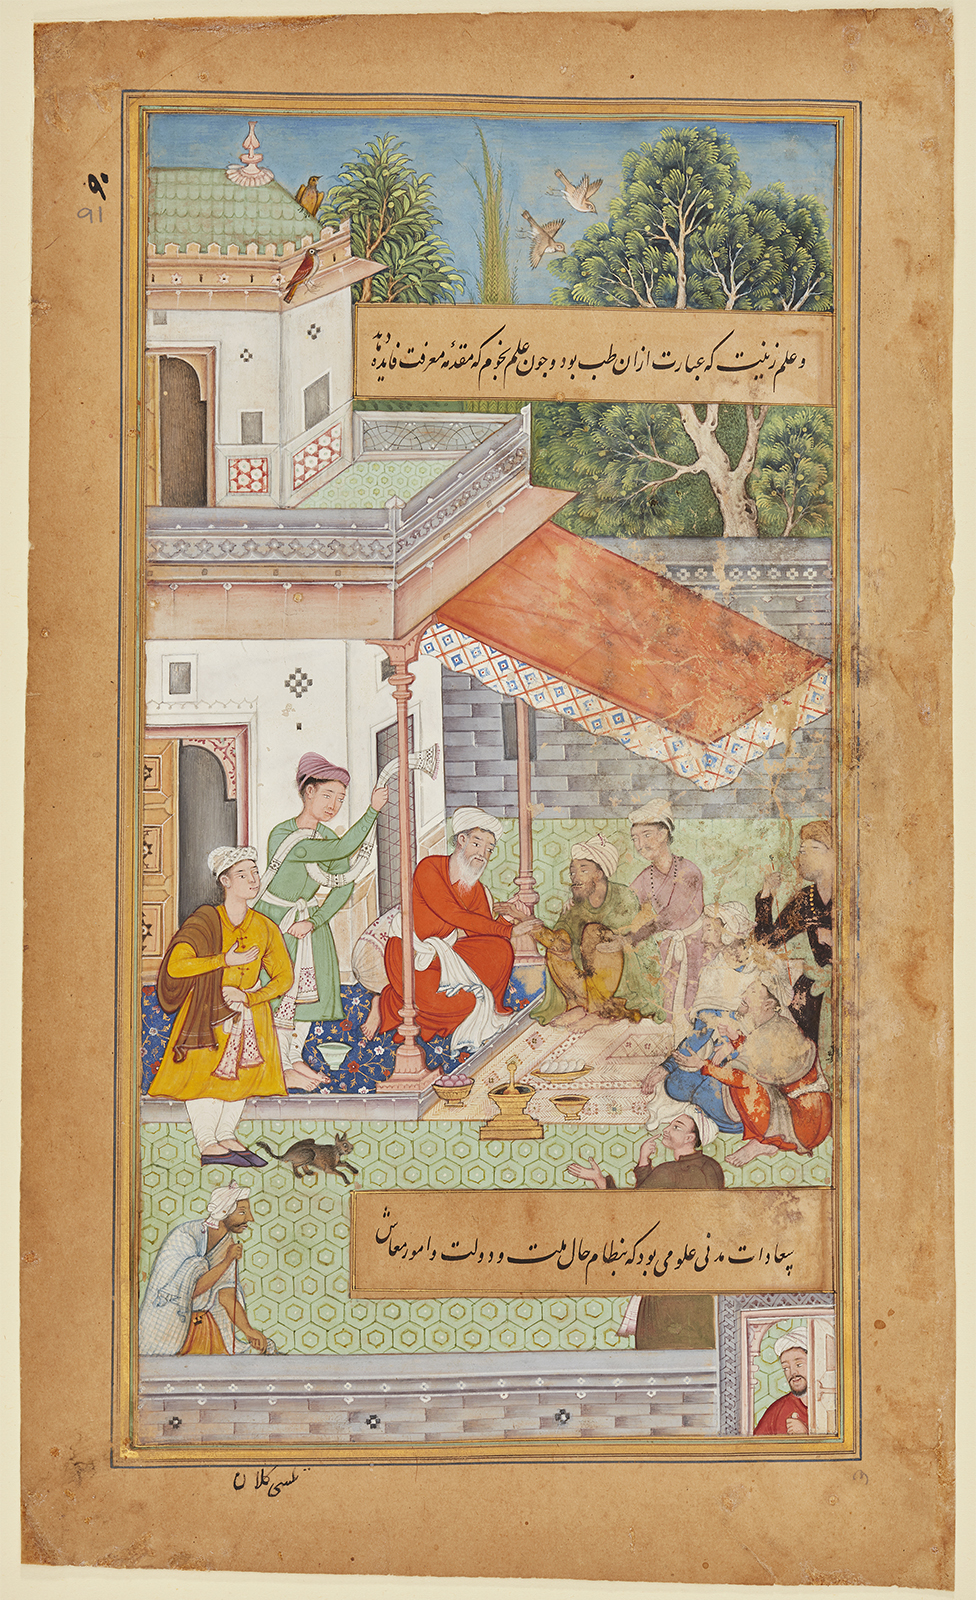 ۹۰
91
و علم زینت که عبارت ازان طب بود و چون علم نجوم که مقدمهٔ معرفت فایده دهد
بعادات مدنی علومی بود که بنظام حال ملت و دولت و امور معاش
تلسی کلان